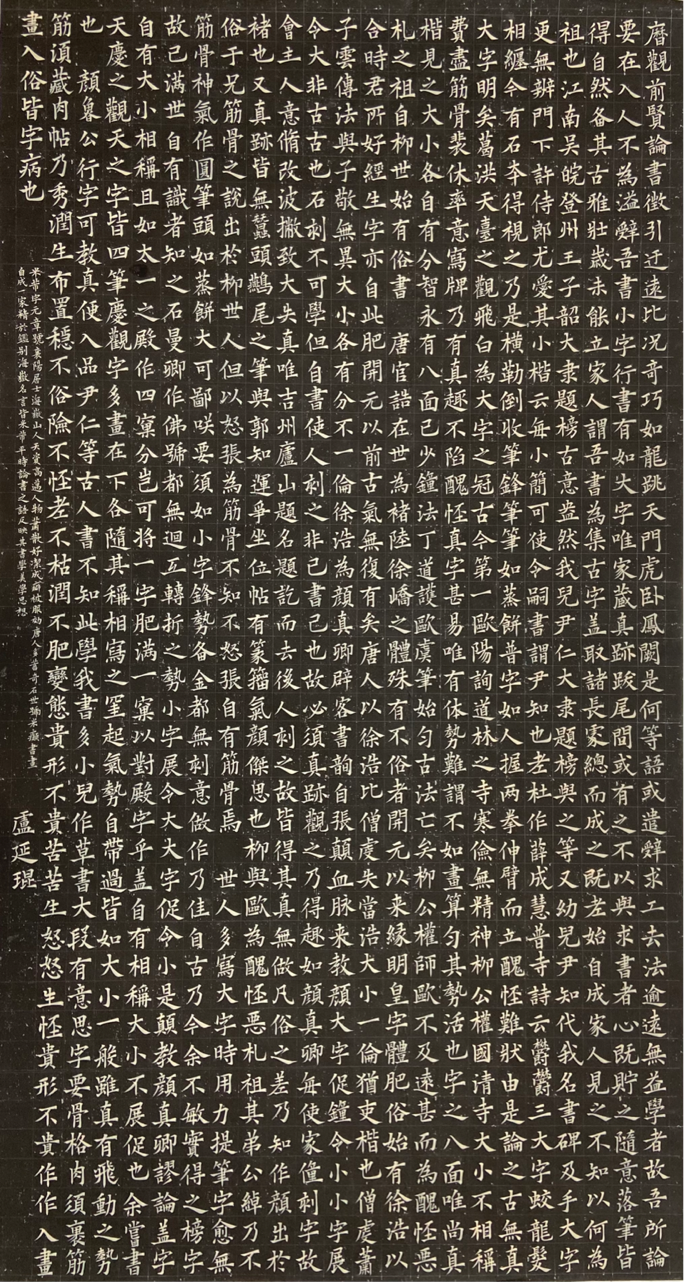 曆觀前賢論書徵引迂遠比況奇巧如龍跳天門虎卧鳳闕是何等語或遣辭求工去法逾遠無益學者故吾所論
要在入人不為溢辭吾書小字行書有如大字唯家藏真跡跋尾間或有之不以與求書者心既貯之隨意落筆皆
得自然各其古雅壯歲未能立家人謂吾書為集古字盖取諸長處總而成之既老始自成家人見之不知以何為
祖也江南吳皖登州王子韶大隶題榜古意盎然我兒尹仁大隶題榜與之等又幼兒尹知代我名書碑及手大字
更無辨門下許侍郎尤愛其小楷云每小簡可使令嗣書謂尹知也老杜作薛成慧普寺詩云鬱鬱三大字蛟龍岌
相纏今有石本得視之乃是橫勒倒收筆鋒筆筆如蒸餅普字如人握两拳伸臂而立醜怪難狀由是論之古無真
大字明矣葛洪天臺之觀飛白為大字之冠古今第一歐陽詢道林之寺寒儉無精神柳公權國清寺大小不相稱
費盡筋骨裴休率意寫牌乃有真趣不陷醜怪真字甚易唯有体勢難謂不如畫算勻其勢活也字之八面唯尚真
楷見之大小各自有分智永有八面已少鐘法丁道護歐虞筆始勻古法亡矣柳公權師歐不及遠甚而為醜怪惡
札之祖自柳世始有俗書 唐官誥在世為褚陸徐嶠之體殊有不俗者開元以来緣明皇字體肥俗始有徐浩以
合時君所好經生字亦自此肥開元以前古氣無復有矣唐人以徐浩比僧虔失當浩大小一倫猶吏楷也僧虔蕭
子雲傳法與子敬無異大小各有分不一倫徐浩為顏真卿辟客書韻自張顛血脉来教顏大字促鐘令小小字展
令大非古古也石刻不可學但自書使人刻之非已書己也故必須真跡觀之乃得趣如顏真卿每使家僮刻字故
會主人意脩改波撇致大失真唯吉州廬山題名題訖而去後人刻之故皆得其真無做凡俗之差乃知作顏出於
褚也又真跡皆無蠶頭鷰尾之筆與郭知運爭坐位帖有篆籀氣顏傑思也柳與歐為醜怪惡札祖其弟公綽乃不
俗于兄筋骨之說出於柳世人但以怒張為筋骨不知不怒張自有筋骨焉 世人多寫大字時用力提筆字愈無
筋骨神氣作圓筆頭如蒸餅大可鄙咲要須如小字鋒勢备金都無刻意做作乃佳自古乃今余不敏實得之榜字
故已满世自有識者知之石曼卿作佛號都無迴互轉折之勢小字展令大大字促令小是顛教顏真卿謬論盖字
自有大小相稱且如太一之殿作四窠分岂可將一字肥满一窠以對殿字乎盖自有相稱大小不展促也余嘗書
天慶之觀天之字皆四筆慶觀字多畫在下各隨其稱相寫之罣起氣勢自帶過皆如大小一般雖真有飛動之勢
也 顏魯公行字可教真便入品尹仁等古人書不知此學我書多小兒作草書大段有意思字要骨格肉須裹筋
筋須藏肉帖乃秀潤生布置穩不俗險不怪老不枯潤不肥變態貴形不貴苦苦生怒怒生怪貴形不贵作作入畫
畫入俗皆字病也
米芾字元章號襄陽居士海嶽山人天資高邁人物蕭散好潔成癖被服効唐人多蓄奇石世號米顛書畫
自成一家精於鑑別海嶽名言皆米芾平時論書之語反映其書學美學思想
盧延琨